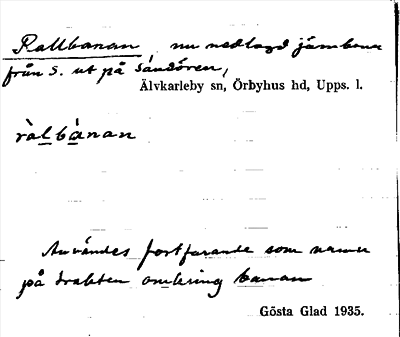 Rallbanan, nu nedlagd järnbana
från S. ut på Sandören,
Älvkarleby sn, Örbyhus hd, Upps. l.
ràlbànan
Användes fortfarande som namn
på trakten omkring banan
Gösta Glad 1935.